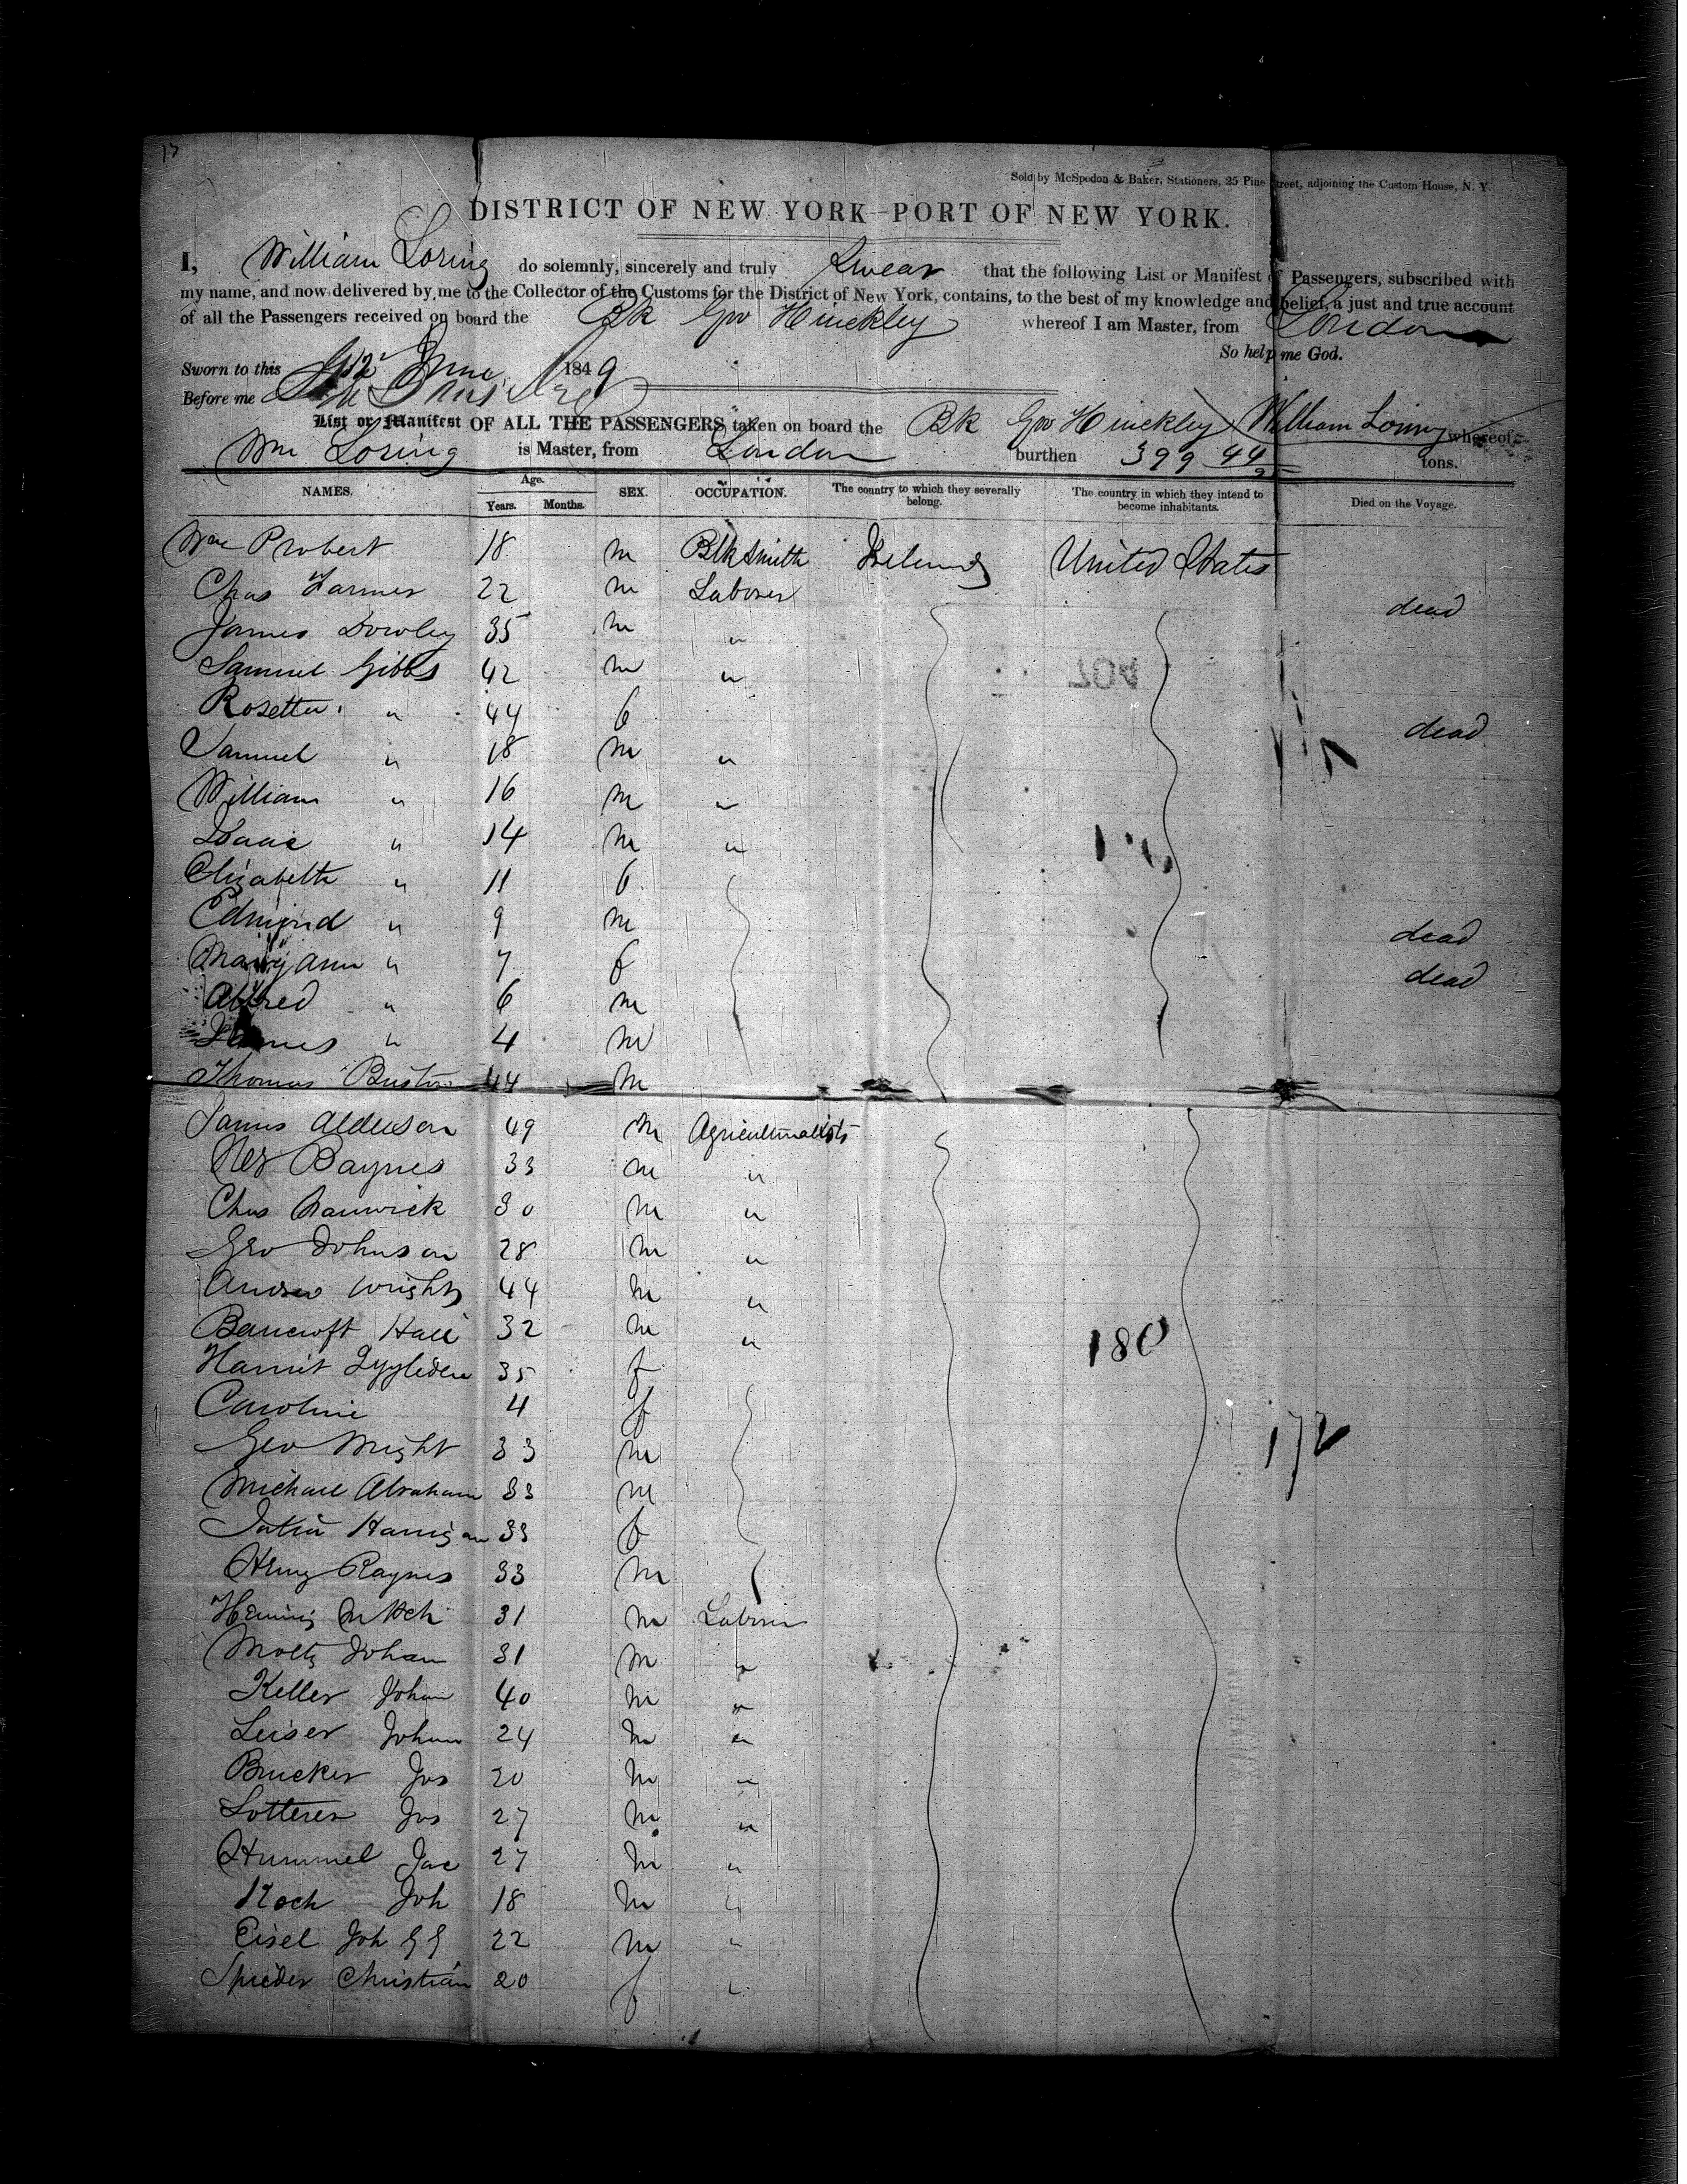 17
Sold by McSpedon & Baker, Stationers, 25 Pine Street, adjoining the Custom House, N. Y.
DISTRICT OF NEW YORK—PORT OF NEW YORK.
I, William Loring do solemnly, sincerely and truly Swear that the following List or Manifest of Passengers, subscribed with
my name, and now delivered by me to the Collector of the Customs for the District of New York, contains, to the best of my knowledge and belief, a just and true account
of all the Passengers received on board the Bk Gov Hinckley whereof I am Master, from London
So help me God.
Sworn to this June 1849
Before me
List or Manifest OF ALL THE PASSENGERS taken on board the Bk Gov Hinckley William Loring whereof
Wm Loring is Master, from London burthen 399 44 tons.
NAMES. Age. Years. Months. SEX. OCCUPATION. The country to which they severally belong. The country in which they intend to become inhabitants. Died on the Voyage.
Wm Probert 18 m Blksmith Ireland United States
Chas Farmer 22 m Laborer dead
James Dowley 35 m "
Samuel Gibbs 42 m "
Rosetta " 44 f dead
Samuel " 18 m "
William " 16 m "
Isaac " 14 m "
Elizabeth " 11 f
Edmond " 9 m dead
Mary Ann " 7 f dead
Alfred " 6 m
James " 4 m
Thomas 44 m
James Alderson 49 m Agriculturalists
Baynes 33 m "
Chas 30 m "
Geo Johnson 28 m "
Andrew Wright 44 m "
Bancroft Hall 32 m "
180
Harriet 35 f
Caroline 4 f
Geo Wright 33 m
172
Michael Abraham 33 m
Harrigan 33 f
Henry Raynes 33 m
31 m Laborer
Moltz Johan 31 m "
Keller Johan 40 m "
Leiser Johan 24 m "
Brucker Jos 20 m "
Lotterer Jos 27 m "
Hummel Jac 27 m "
Koch Joh 18 m "
Eisel Joh G G 22 m "
Christian 20 f "